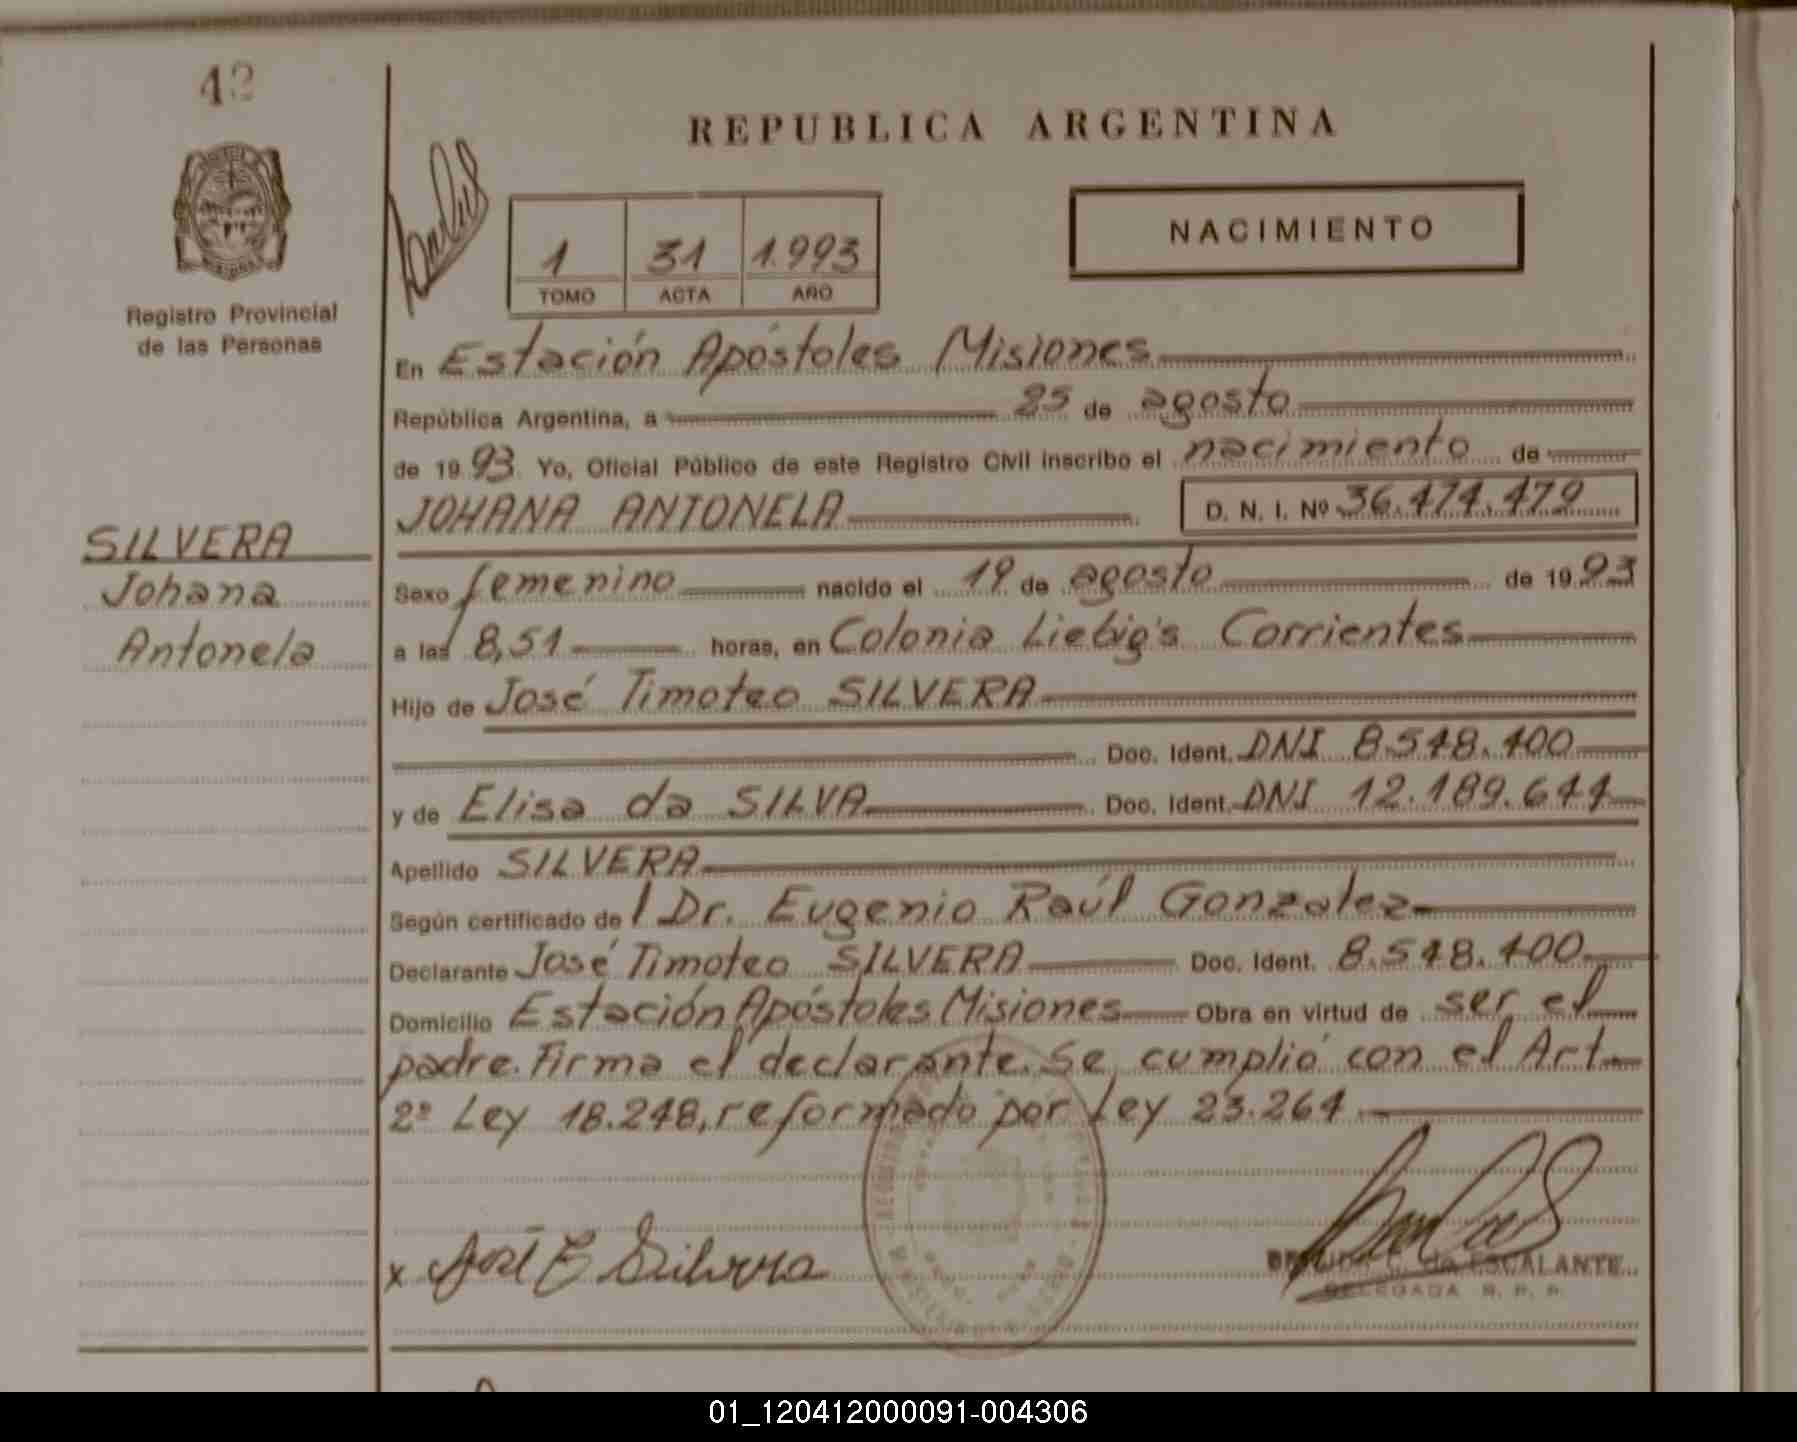 42
REPUBLICA ARGENTINA
NACIMIENTO
1 31 1.993
TOMO ACTA AÑO
Registro Provincial
de las Personas
En Estación Apóstoles Misiones
República Argentina, a 25 de agosto
de 1993. Yo, Oficial Público de este Registro Civil inscribo el nacimiento de
JOHANA ANTONELA D. N. I. Nº 36.474.479
SILVERA
Johana
Antonela
Sexo femenino nacido el 19 de agosto de 1993
a las 8,51 horas, en Colonia Liebig's Corrientes
Hijo de José Timoteo SILVERA
Doc. Ident. DNI 8.548.400
y de Elisa da SILVA Doc. Ident. DNI 12.189.644
Apellido SILVERA
Según certificado de l Dr. Eugenio Raúl Gonzalez
Declarante José Timoteo SILVERA Doc. Ident. 8.548.400
Domicilio Estación Apóstoles Misiones Obra en virtud de ser el
padre. Firma el declarante. Se cumplió con el Art.
2º Ley 18.248, reformado por Ley 23.264.
x José T Silvera
C. de ESCALANTE
DELEGADA R. P. P.
01_120412000091-004306